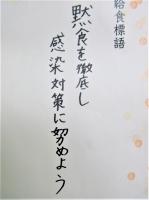 給食標語
黙食を徹底し
感染対策に努めよう